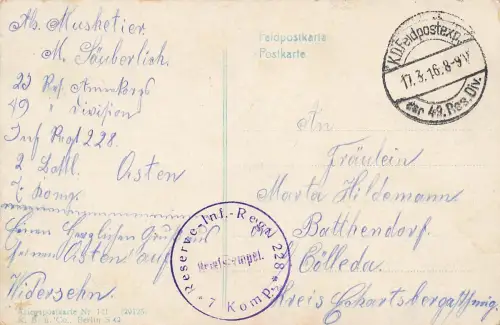 Abs. Musketier
M. Säuberlich
23 Res. Armeekorps
49 " Division
Inf Regt 228.
2 Batl. Osten
7 Komp.
Einen herzlichen Gruß aus
fernen Osten auf
Widersehn
Feldpostkarte
Postkarte
K.D. Feldpostexp.
17.3.16. 8-9V
der 49. Res. Div.
An
Fräulein
Marta Hildemann
Batthendorf
Cölleda
Kreis Eckartsberga
Reserve-Inf.-Regt. 228
Briefstempel.
* 7 Komp. *
Kriegspostkarte Nr.
Berlin S 42